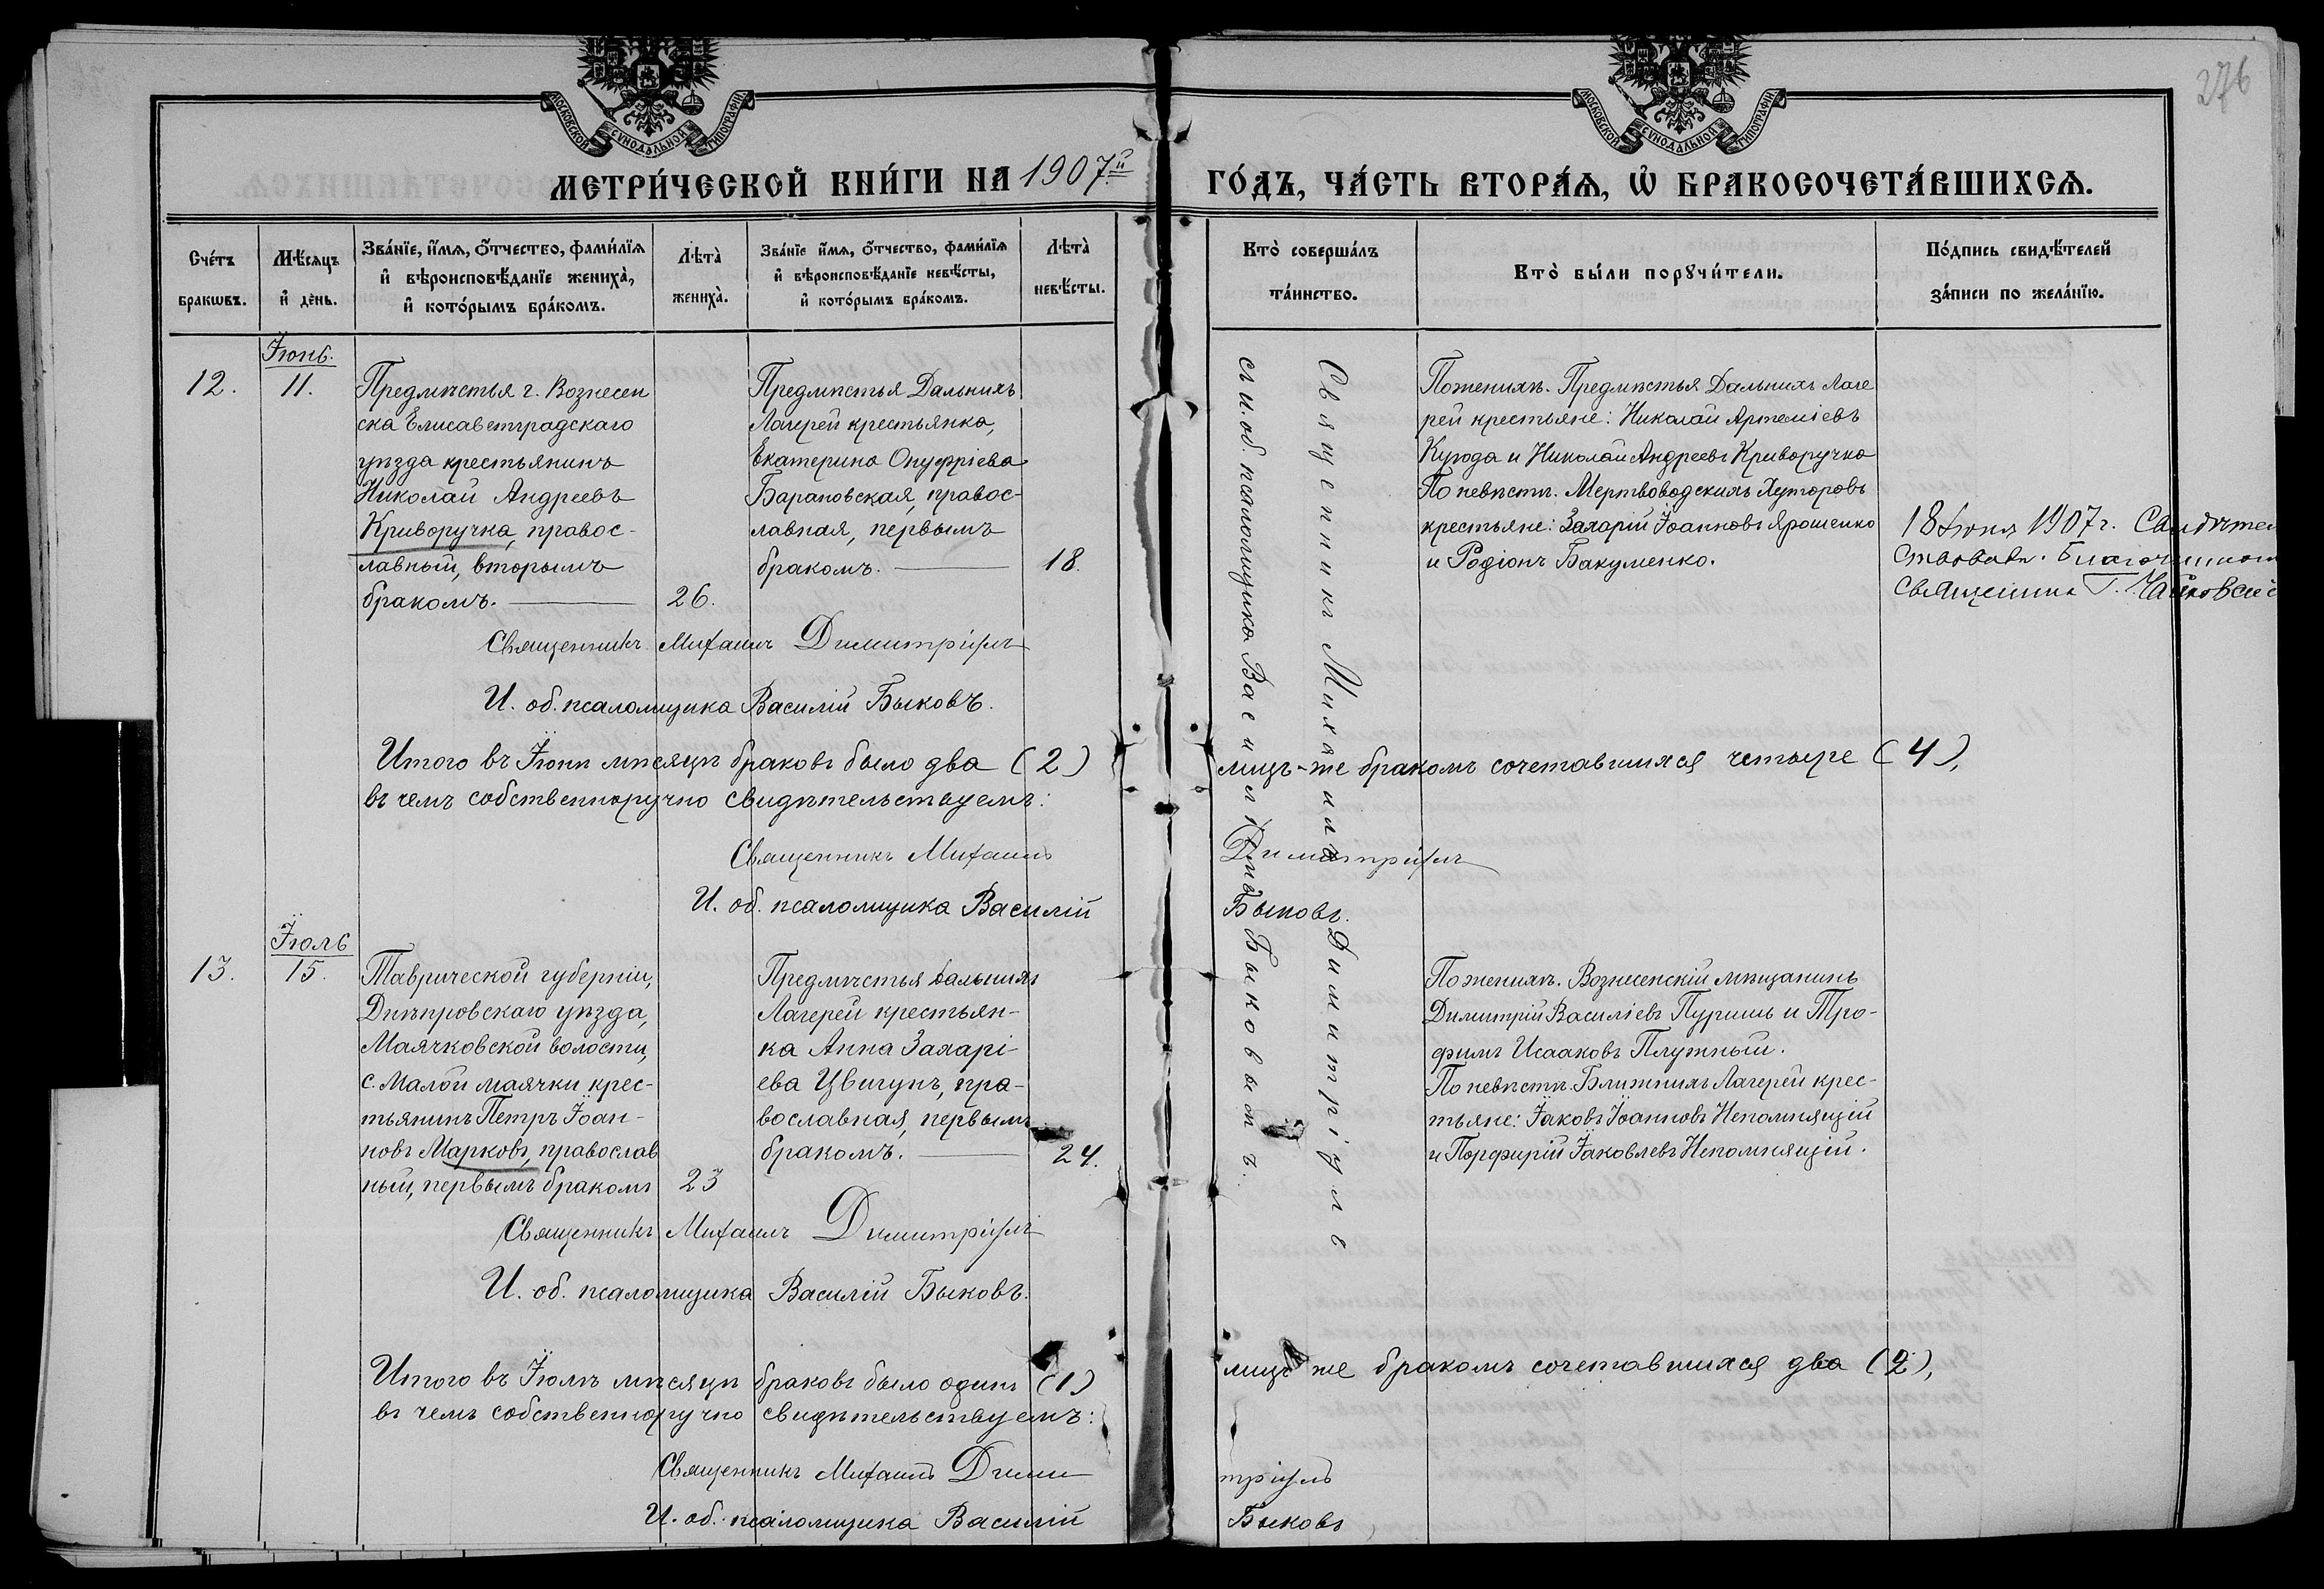 276
МОСКОВСКОЙ СѴНОДАЛЬНОЙ ТИПОГРАФІИ
МОСКОВСКОЙ СѴНОДАЛЬНОЙ ТИПОГРАФІИ
МЕТРИ́ЧЕСКОЙ КНИ́ГИ НА 1907й ГО́ДЪ, ЧА́СТЬ ВТОРА́Ѧ, Ѡ҆ БРАКОСОЧЕТА́ВШИХСѦ.
Сче́тъ
браковъ.
Мѣ́сѧцъ
и҆ де́нь.
Зва́нїе, и҆́мѧ, о҆́тчество, фами́лїѧ
и҆ вѣроисповѣ́данїе жениха̀,
и҆ кото́рымъ бра́комъ.
Лѣта̀
жениха̀.
Зва́нїе и҆́мѧ, о҆́тчество, фами́лїѧ
и҆ вѣроисповѣ́данїе невѣ́сты,
и҆ кото́рымъ бра́комъ.
Лѣта̀
невѣ́сты.
Кто̀ соверша́лъ
та́инство.
Кто̀ бы́ли порꙋчи́тели.
По́дпись свидѣ́телей
за́писи по жела́нїю.
12.
Іюнь.
11.
Предмѣстья г. Вознесен
ска Елисаветградскаго
уѣзда крестьянинъ
Николай Андреевъ
Криворучка, правос-
лавный, вторымъ
бракомъ.
26.
Предмѣстья Дальнихъ
Лагерей крестьянка,
Екатерина Онуфріева
Барановская, правос-
лавная, первымъ
бракомъ.
18.
Священникъ Михаилъ Димитріулъ
И. об. псаломщика Василій Быковъ.
Священникъ Михаилъ Димитріулъ
съ и. об. псаломщика Василіемъ Быковымъ.
По жениху. Предмѣстья Дальнихъ Лаге
рей крестьяне: Николай Артеміевъ
Куюда и Николай Андреевъ Криворучка
По невѣстѣ. Мертвоводскихъ Хуторовъ
крестьяне: Захарій Іоанновъ Ярошенко
и Родіонъ Бакуменко.
18 Іюня 1907 г. Свидѣтел
ствовалъ. Благочинный
священникъ Г. Чайковскій
Итого въ Іюнѣ мѣсяцѣ браковъ было два (2) лицъ-же бракомъ сочетавшихся четыре (4),
въ чемъ собственноручно свидѣтельствуемъ:
Священникъ Михаилъ Димитріулъ
И. об. псаломщика Василій Быковъ.
13.
Іюль
15.
Таврической губерніи,
Днѣпровскаго уѣзда,
Маячковской волости,
с. Малой маячки крес-
тьянинъ Петръ Іоан-
новъ Марковъ, православ
ный, первымъ бракомъ
23
Предмѣстья Дальнихъ
Лагерей крестьян-
ка Анна Захарі-
ева Цвигунъ, пра-
вославная, первымъ
бракомъ.
24.
Священникъ Михаилъ Димитріулъ
И. об. псаломщика Василій Быковъ.
По жениху. Вознесенскій мѣщанинъ
Димитрій Василіевъ Пуришъ и Тро-
фимъ Исааковъ Плужный.
По невѣстѣ. Ближнихъ Лагерей крес-
тьяне: Іаковъ Іоанновъ Непомнящій
и Порфирій Іаковлевъ Непомнящій.
Итого въ Іюлѣ мѣсяцѣ браковъ было одинъ (1) лицъ же бракомъ сочетавшихся два (2),
въ чемъ собственноручно свидѣтельствуемъ:
Священникъ Михаилъ Димитріулъ
И. об. псаломщика Василій Быковъ